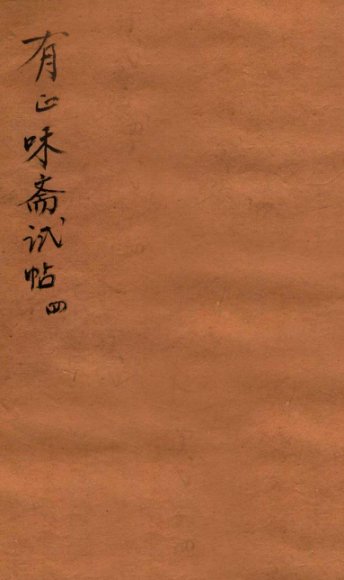 有正味斋试帖 四